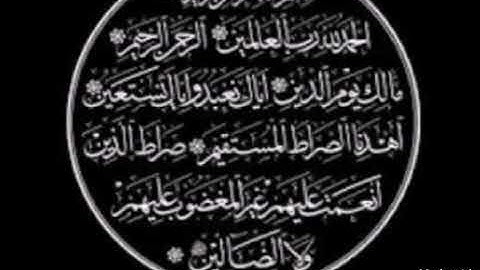 الحمد لله رب العالمين * الرحمن الرحيم *
مالك يوم الدين * اياك نعبد واياك نستعين *
اهدنا الصراط المستقيم * صراط الذين
انعمت عليهم غير المغضوب عليهم
ولا الضالين *